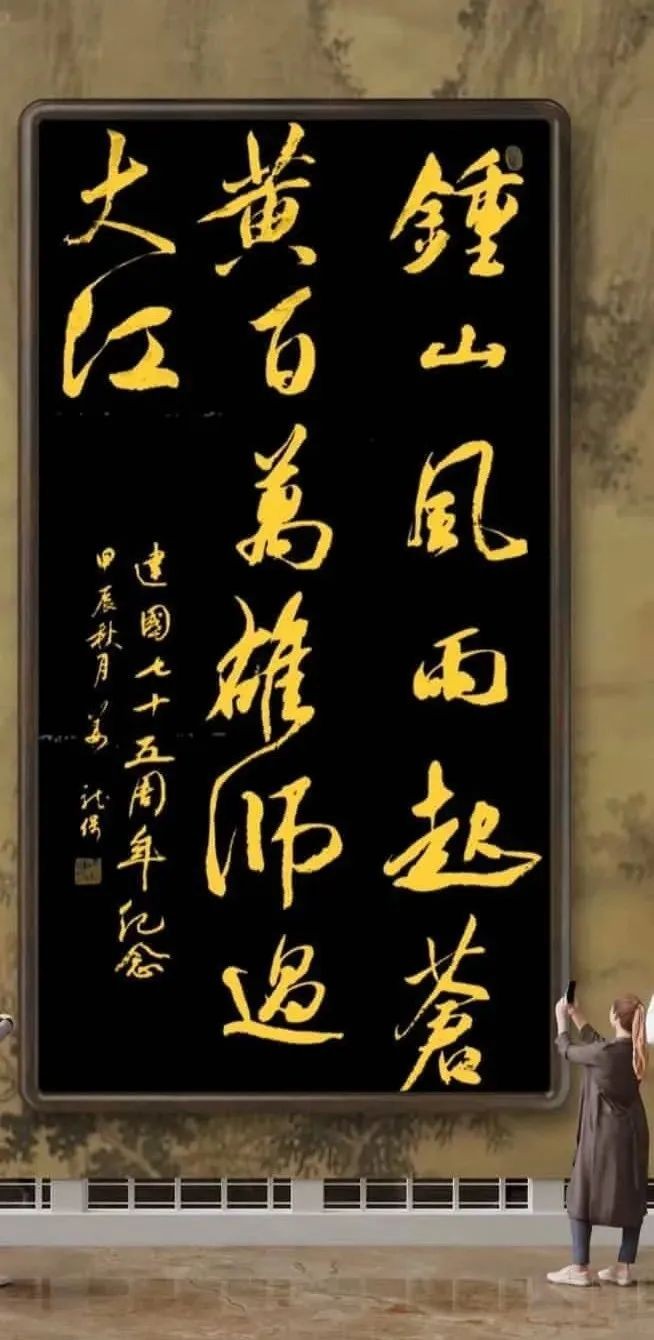 鍾山風雨起蒼
黄百萬雄师過
大江
建國七十五周年纪念
甲辰秋月姜